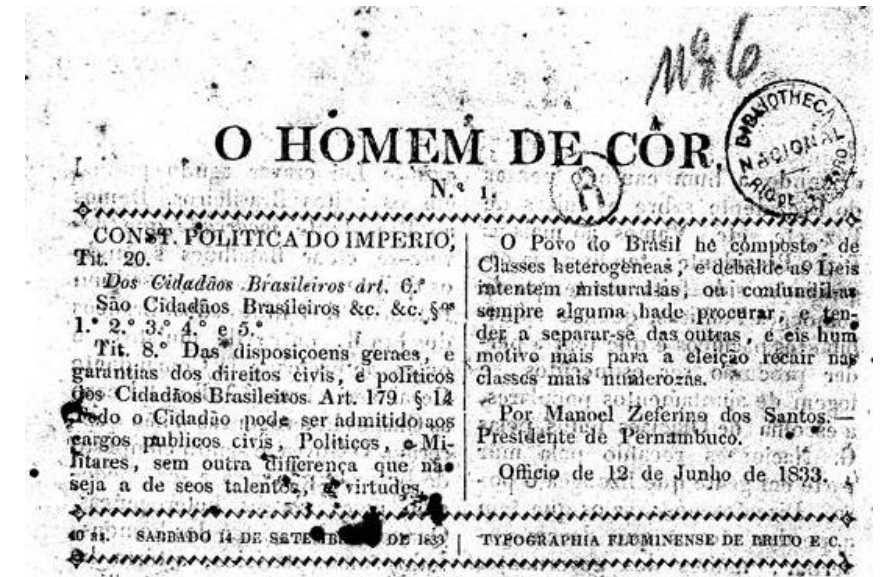 Nº 6
BIBLIOTHECA NACIONAL
RIO DE JANEIRO
O HOMEM DE CÔR.
N.º 1.
CONST. POLITICA DO IMPERIO,
Tit. 20.
Dos Cidadãos Brasileiros art. 6.º
São Cidadãos Brasileiros &c. &c. §os
1.º 2.º 3.º 4.º e 5.º
Tit. 8.º Das disposiçoens geraes, e
garantias dos direitos civis, e politicos
dos Cidadãos Brasileiros. Art. 179 § 14
Todo o Cidadão pode ser admitido aos
cargos publicos civis, Politicos, e Mi-
litares, sem outra differença que não
seja a de seos talentos, e virtudes.
O Povo do Brasil he composto de
Classes heterogeneas, e debalde as Leis
intentem mistural-as, ou confundil-as
sempre alguma hade procurar, e ten-
der a separar-se das outras, e eis hum
motivo mais para a eleição recair nas
classes mais numerozas.
Por Manoel Zeferino dos Santos.—
Presidente de Pernambuco.
Officio de 12 de Junho de 1833.
SABBADO 14 DE SETEMBRO DE 1833
TYPOGRAPHIA FLUMINENSE DE BRITO E C.